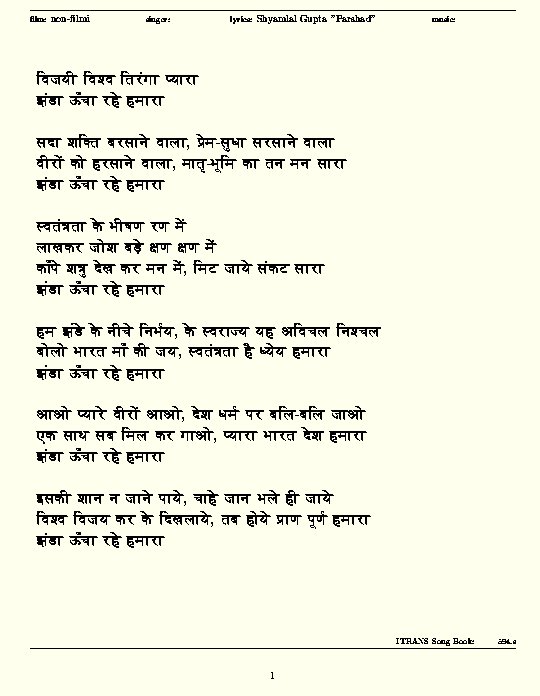 film: non-filmi singer: lyrics: Shyamlal Gupta "Parshad" music:
विजयी विश्व तिरंगा प्यारा
झंडा ऊँचा रहे हमारा
सदा शक्ति बरसाने वाला, प्रेम-सुधा सरसाने वाला
वीरों को हरसाने वाला, मातृ-भूमि का तन मन सारा
झंडा ऊँचा रहे हमारा
स्वतंत्रता के भीषण रण में
लाखकर जोश बड़े क्षण क्षण में
काँपे शत्रु देख कर मन में, मिट जाये संकट सारा
झंडा ऊँचा रहे हमारा
हम झंडे के नीचे निर्भय, के स्वराज्य यह अविचल निश्चल
बोलो भारत माँ की जय, स्वतंत्रता है ध्येय हमारा
झंडा ऊँचा रहे हमारा
आओ प्यारे वीरों आओ, देश धर्म पर बलि-बलि जाओ
एक साथ सब मिल कर गाओ, प्यारा भारत देश हमारा
झंडा ऊँचा रहे हमारा
इसकी शान न जाने पाये, चाहे जान भले ही जाये
विश्व विजय कर के दिखलाये, तब होये प्राण पूर्ण हमारा
झंडा ऊँचा रहे हमारा
ITRANS Song Book:
1